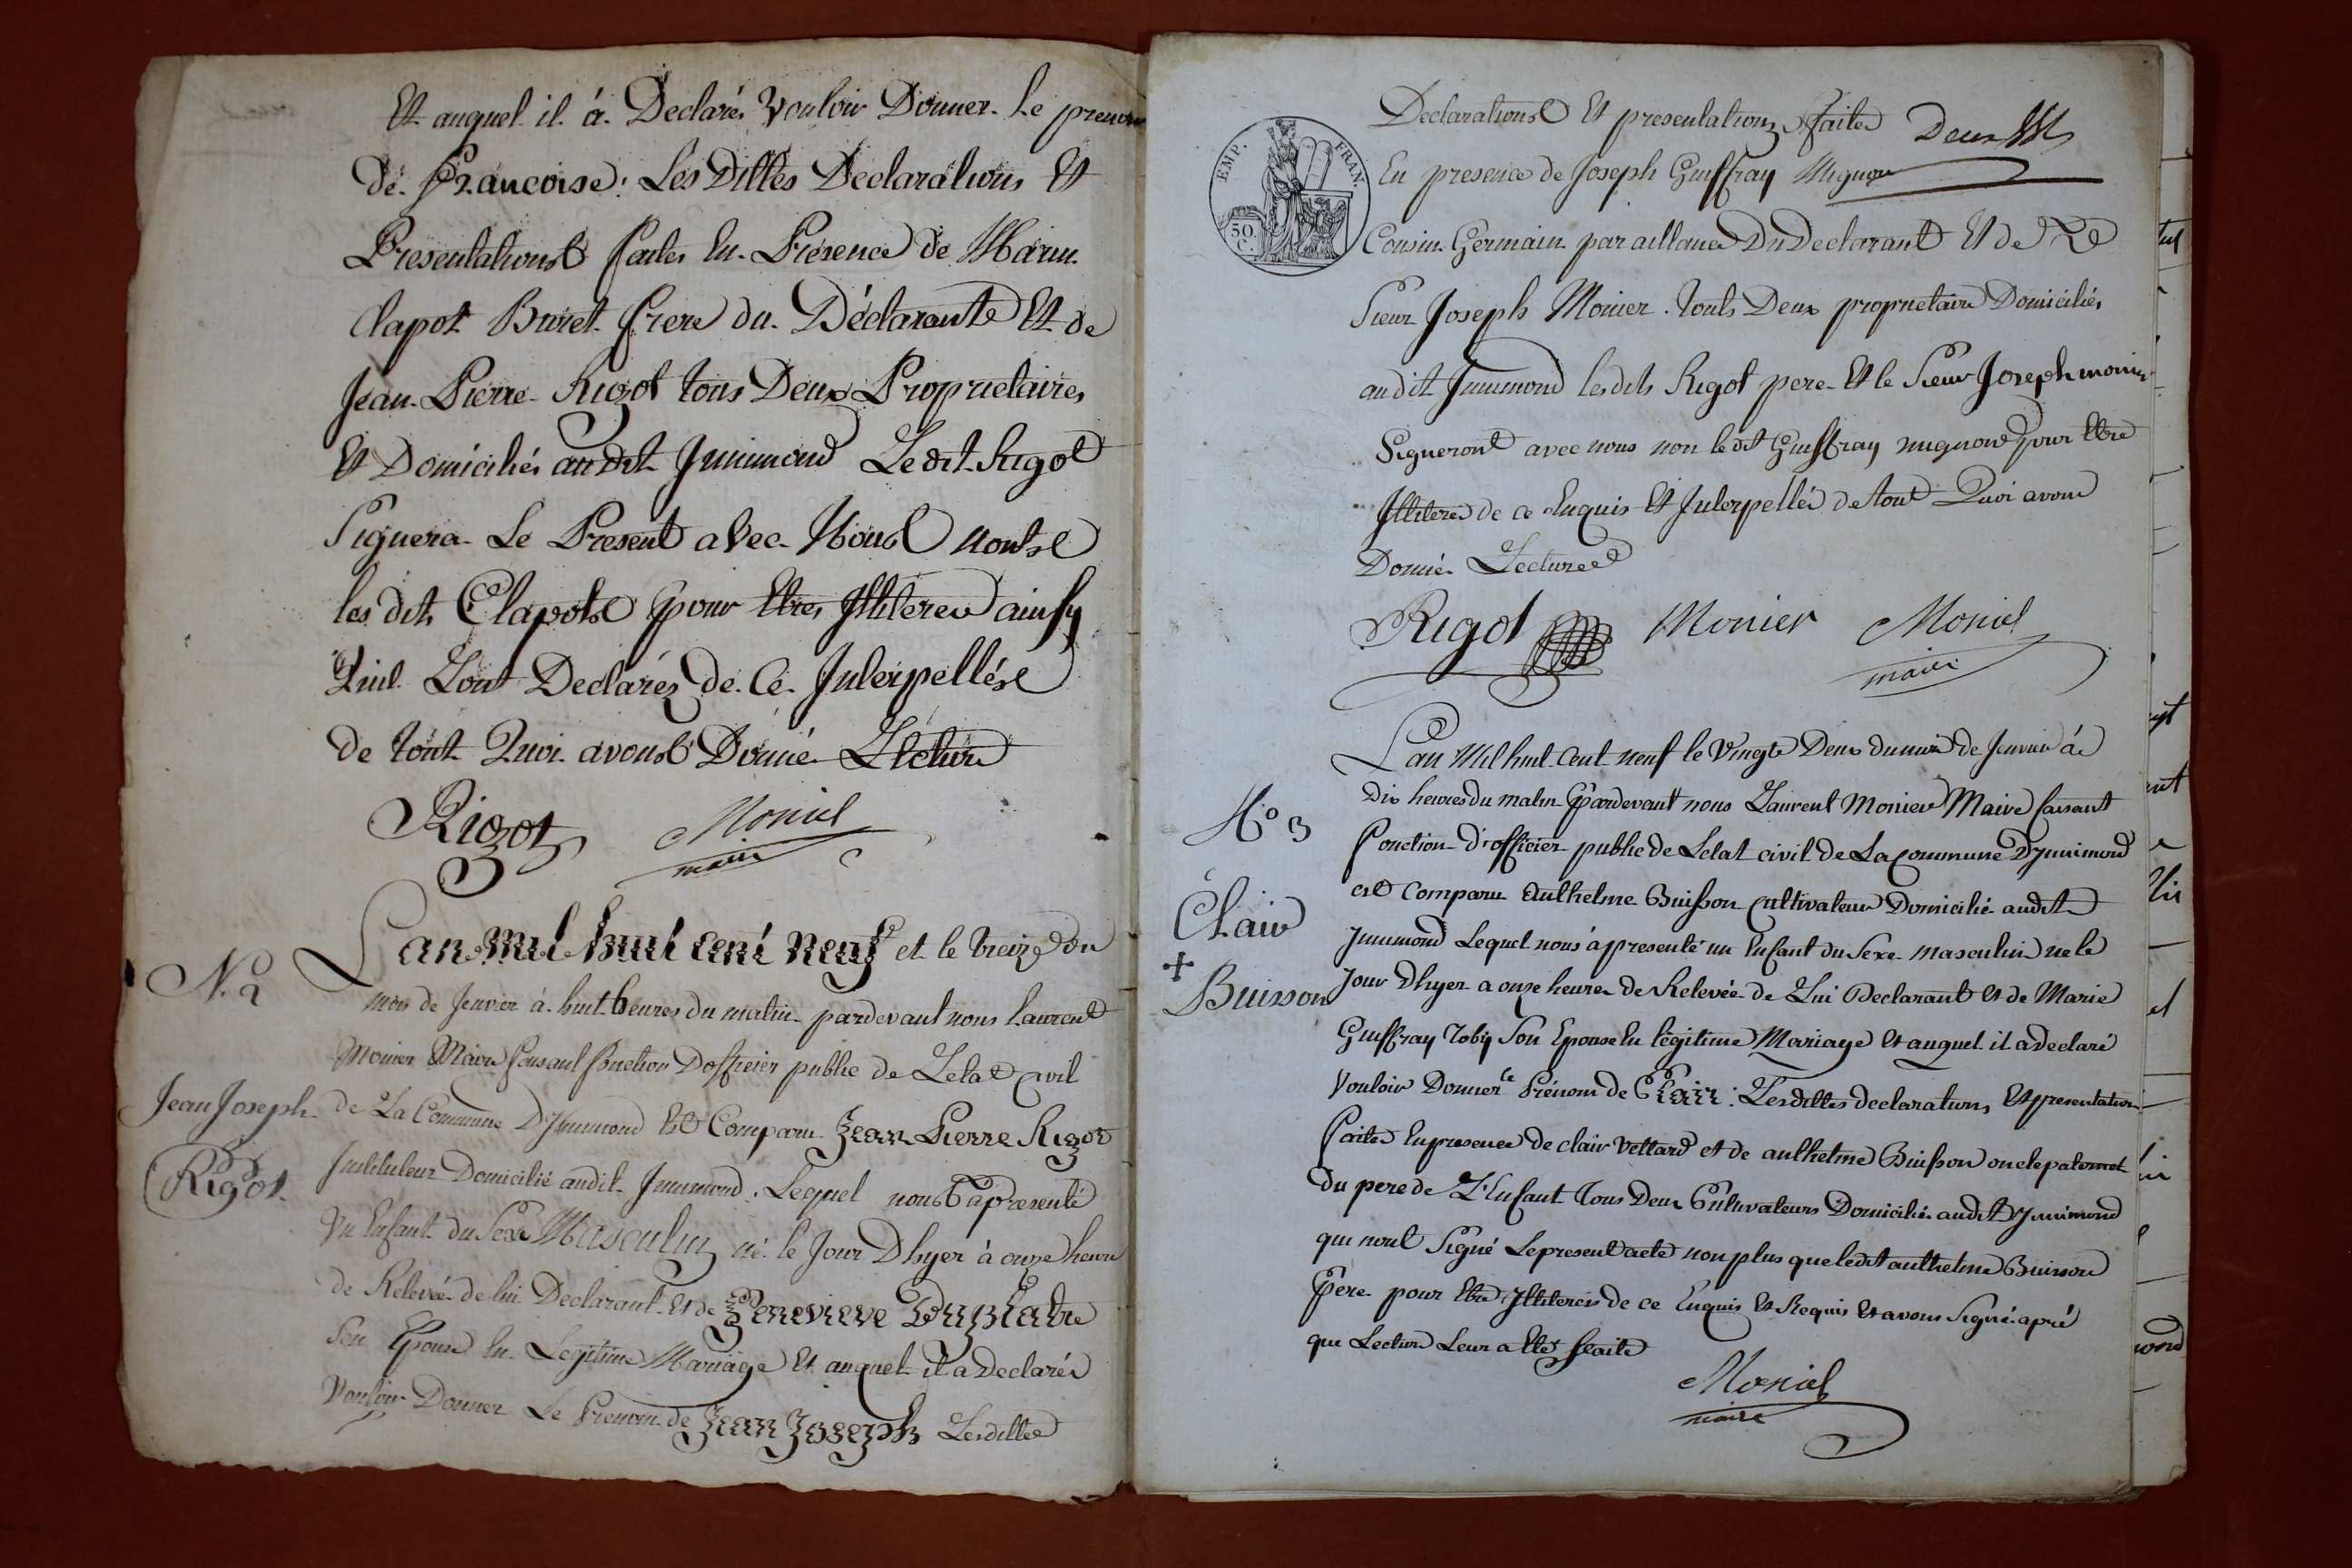 Et auquel il à Declarés Vouloir Donner Le prenom
de Francoise: Les Dittes Declarations Et
Presentations faites En Présence de Marin
Clapot Buret frere du Déclarante Et de
Jean Pierre Rigot tous Deux Proprietaires
Et Domiciliés audit Jnnimond Le dit Rigot
Signera Le Present avec Nous nontse
les dits Clapotse pour Etres Jlliteres ainsy
Quil Lont Declarés de Ce Jnterpellése
de tout Quoi avons Donné Lecture
Rigot Monier
maire
N. 2
L'an Mil huit cent Neuf et le treize du
mois de Jenvier à huit heures du matin pardevant nous Laurent
Monier Maire faisant fonction Dofficier public de Letat civil
Jean Joseph
Rigot
de La Commune DJnnimond Est Comparu Jean Pierre Rigot
Jnstituteur Domicilié audit Jnnimond. Lequel nous à presenté
Un Enfant du Sexe Masculin né le Jour Dhyer à onze heure
de Relevée de lui Declarant Et de Genevieve Duplatre
Son Epouse En Legitime Mariage Et auquel il a Declarés
Vouloir Donner Le Prenom de Jean Joseph Lesdittes
Declarations Et presentations faites Deux
EMP. FRAN.
50 C.
En presence de Joseph Guiffray Mignon
Cousin Germain par aillance Du Declarant Et de
Sieur Joseph Monier. touts Deux proprietaire Domiciliés
audit Jnnimond lesdits Rigot pere Et le Sieur Joseph monier
Signeront avec nous non ledit Guiffray mignon pour Etre
Jllitere de ce Enquis Et Jnterpellés de tout Quoi avons
Donné Lecture
Rigot Monier Monier
maire
N° 3
Clair
+
Buisson
L'an Mil huit Cent neuf le Vingt Deux du mois de Jenvier à
Dix heures du matin Pardevant nous Laurent Monier Maire faisant
fonction d'officier public de Letat civil de La commune DJnnimond
est Comparu Anthelme Buisson Cultivateur Domicilié audit
Jnnimond Lequel nous à presenté un Enfant du Sexe masculin né le
Jour Dhyer a onze heures de Relevée de Lui Declarant Et de Marie
Guiffray Toby Son Epouse En légitime Mariage Et auquel il a declaré
Vouloir Donner le Prénom de Clair: Lesdittes declarations Et presentation
faites En presence de clair Vettard et de anthelme Buisson oncle paternel
du pere de L'Enfant Tous Deux Cultivateurs Domicilié audit Jnnimond
qui nont Signé Le present acte non plus que ledit anthelme Buisson
Pere pour Etre Jlliteres de ce Enquis Et Requis Et avons Signé apré
que Lecture Leur a Eté faite
Monier
maire